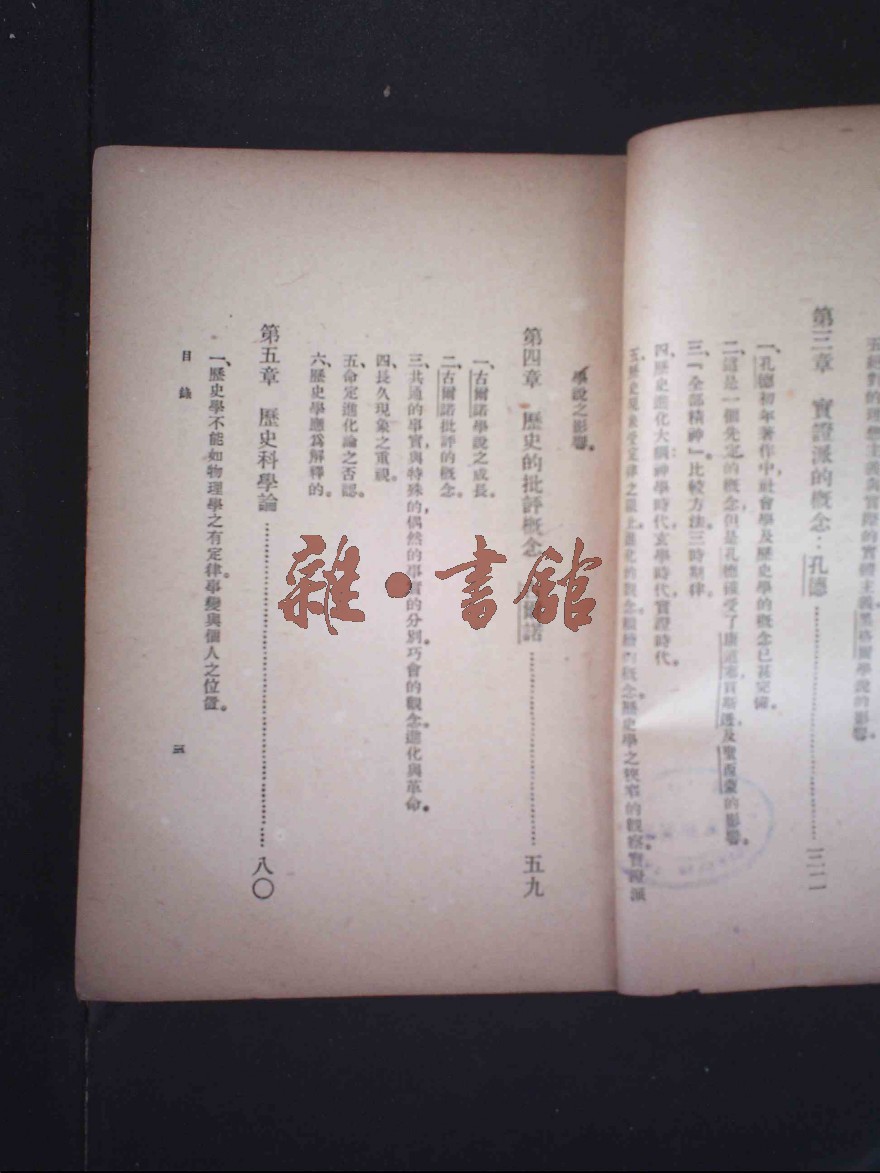 五絕對的理想主義與實際的實體主義黑格爾學說的影響。
第三章 實證派的概念：孔德……三二
一、孔德初年著作中社會學及歷史學的概念已甚完備。
二、這是一個先定的概念但是孔德確受了康道塞買斯達及聖西蒙的影響。
三、『全部精神』比較方法。三時期律。
四、歷史進化大綱神學時代玄學時代實證時代。
五、歷史現象受定律之 進化的觀念 概念歷史學之狹窄的觀察實證派
學說之影響。
第四章 歷史的批評概念 爾諾……五九
一、古爾諾學說之成長。
二、古爾諾批評的概念。
三、共通的事實與特殊的，偶然的事實的分別。巧會的觀念。進化與革命。
四、長久現象之重視。
五、命定進化論之否認。
六、歷史學應爲解釋的。
第五章 歷史科學論……八〇
一、歷史學不能如物理學之有定律。事變與個人之位置。
目錄
三
雜·書館